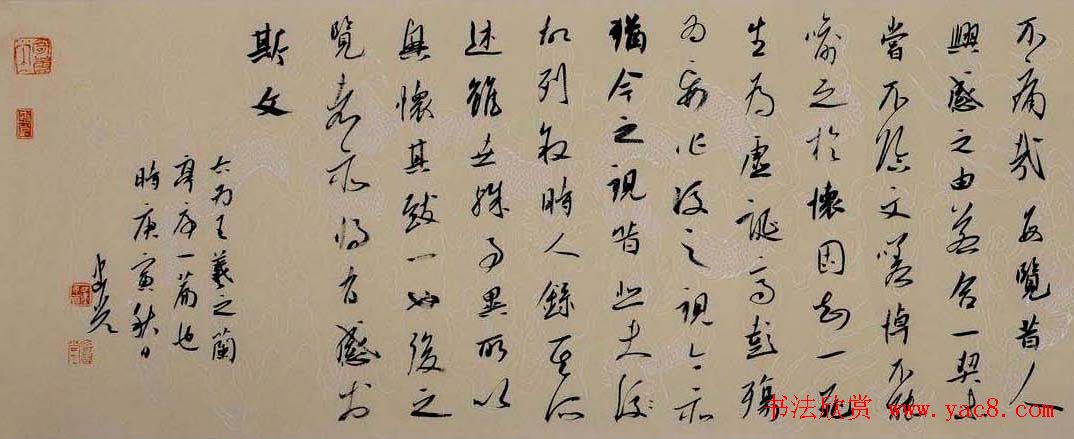 不痛哉每覽昔人
興感之由若合一契未
嘗不臨文嗟悼不能
喻之於懷固知一死
生為虛誕齊彭殤
為妄作後之視今亦
猶今之視昔悲夫
故列敘時人錄其所
述雖世殊事異所以
興懷其致一也後之
覽者亦將有感於
斯文
右為王羲之蘭
亭序一篇也
時庚寅秋日
书法欣赏 www.yac8.com